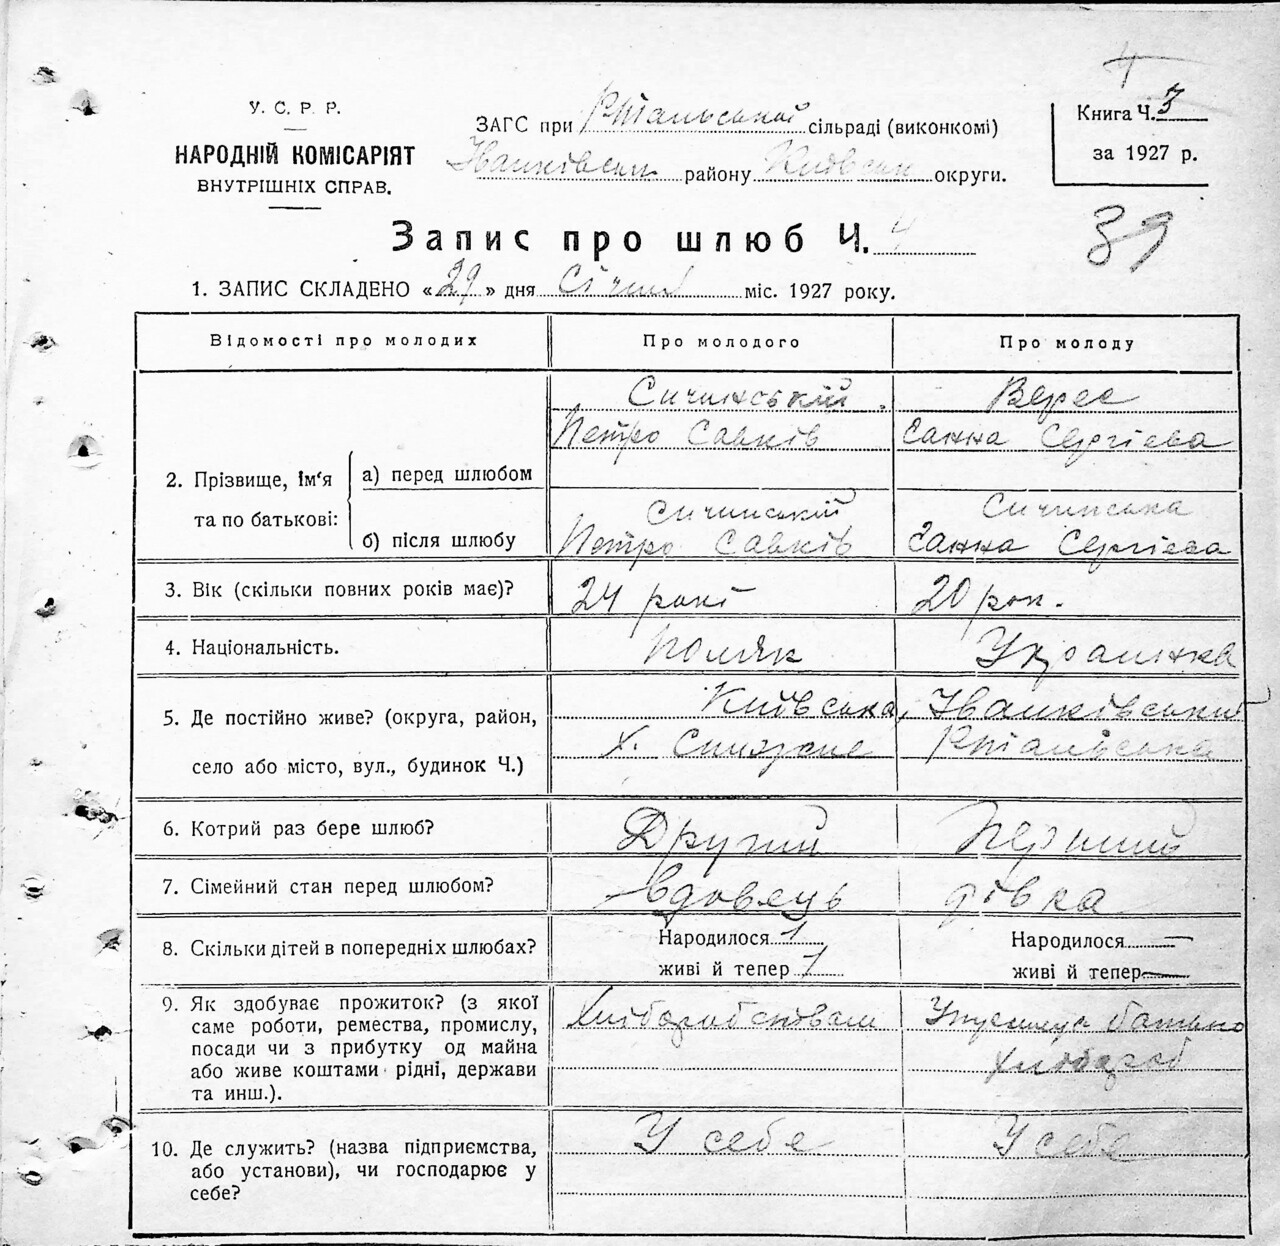 4
У. С. Р. Р.
НАРОДНІЙ КОМІСАРІЯТ
ВНУТРІШНІХ СПРАВ.
ЗАГС при Ртальської сільраді (виконкомі)
Іванківськ району Київськ округи.
Книга Ч. 3
за 1927 р.
39
Запис про шлюб Ч. 4
1. ЗАПИС СКЛАДЕНО «29» дня Січня міс. 1927 року.
Відомості про молодих Про молодого Про молоду
Сичинський Верес
Петро Савків Ганна Сергієва
2. Прізвище, ім'я та по батькові:
а) перед шлюбом
б) після шлюбу
Сичинський Сичинська
Петро Савків Ганна Сергієва
3. Вік (скільки повних років має)? 24 рокі 20 рок.
4. Національність. Поляк Українка
5. Де постійно живе? (округа, район, село або місто, вул., будинок Ч.)
Київська, Іванківський
Х. Ртальська
6. Котрий раз бере шлюб? Другий Перший
7. Сімейний стан перед шлюбом? Вдовець дівка
8. Скільки дітей в попередніх шлюбах? Народилося 1 Народилося —
живі й тепер 1 живі й тепер —
9. Як здобуває прожиток? (з якої
саме роботи, ремества, промислу,
посади чи з прибутку од майна
або живе коштами рідні, держави
та инш.).
Хліборобством батько
хлібороб
10. Де служить? (назва підприємства,
або установи), чи господарює у
себе?
У себе У себе